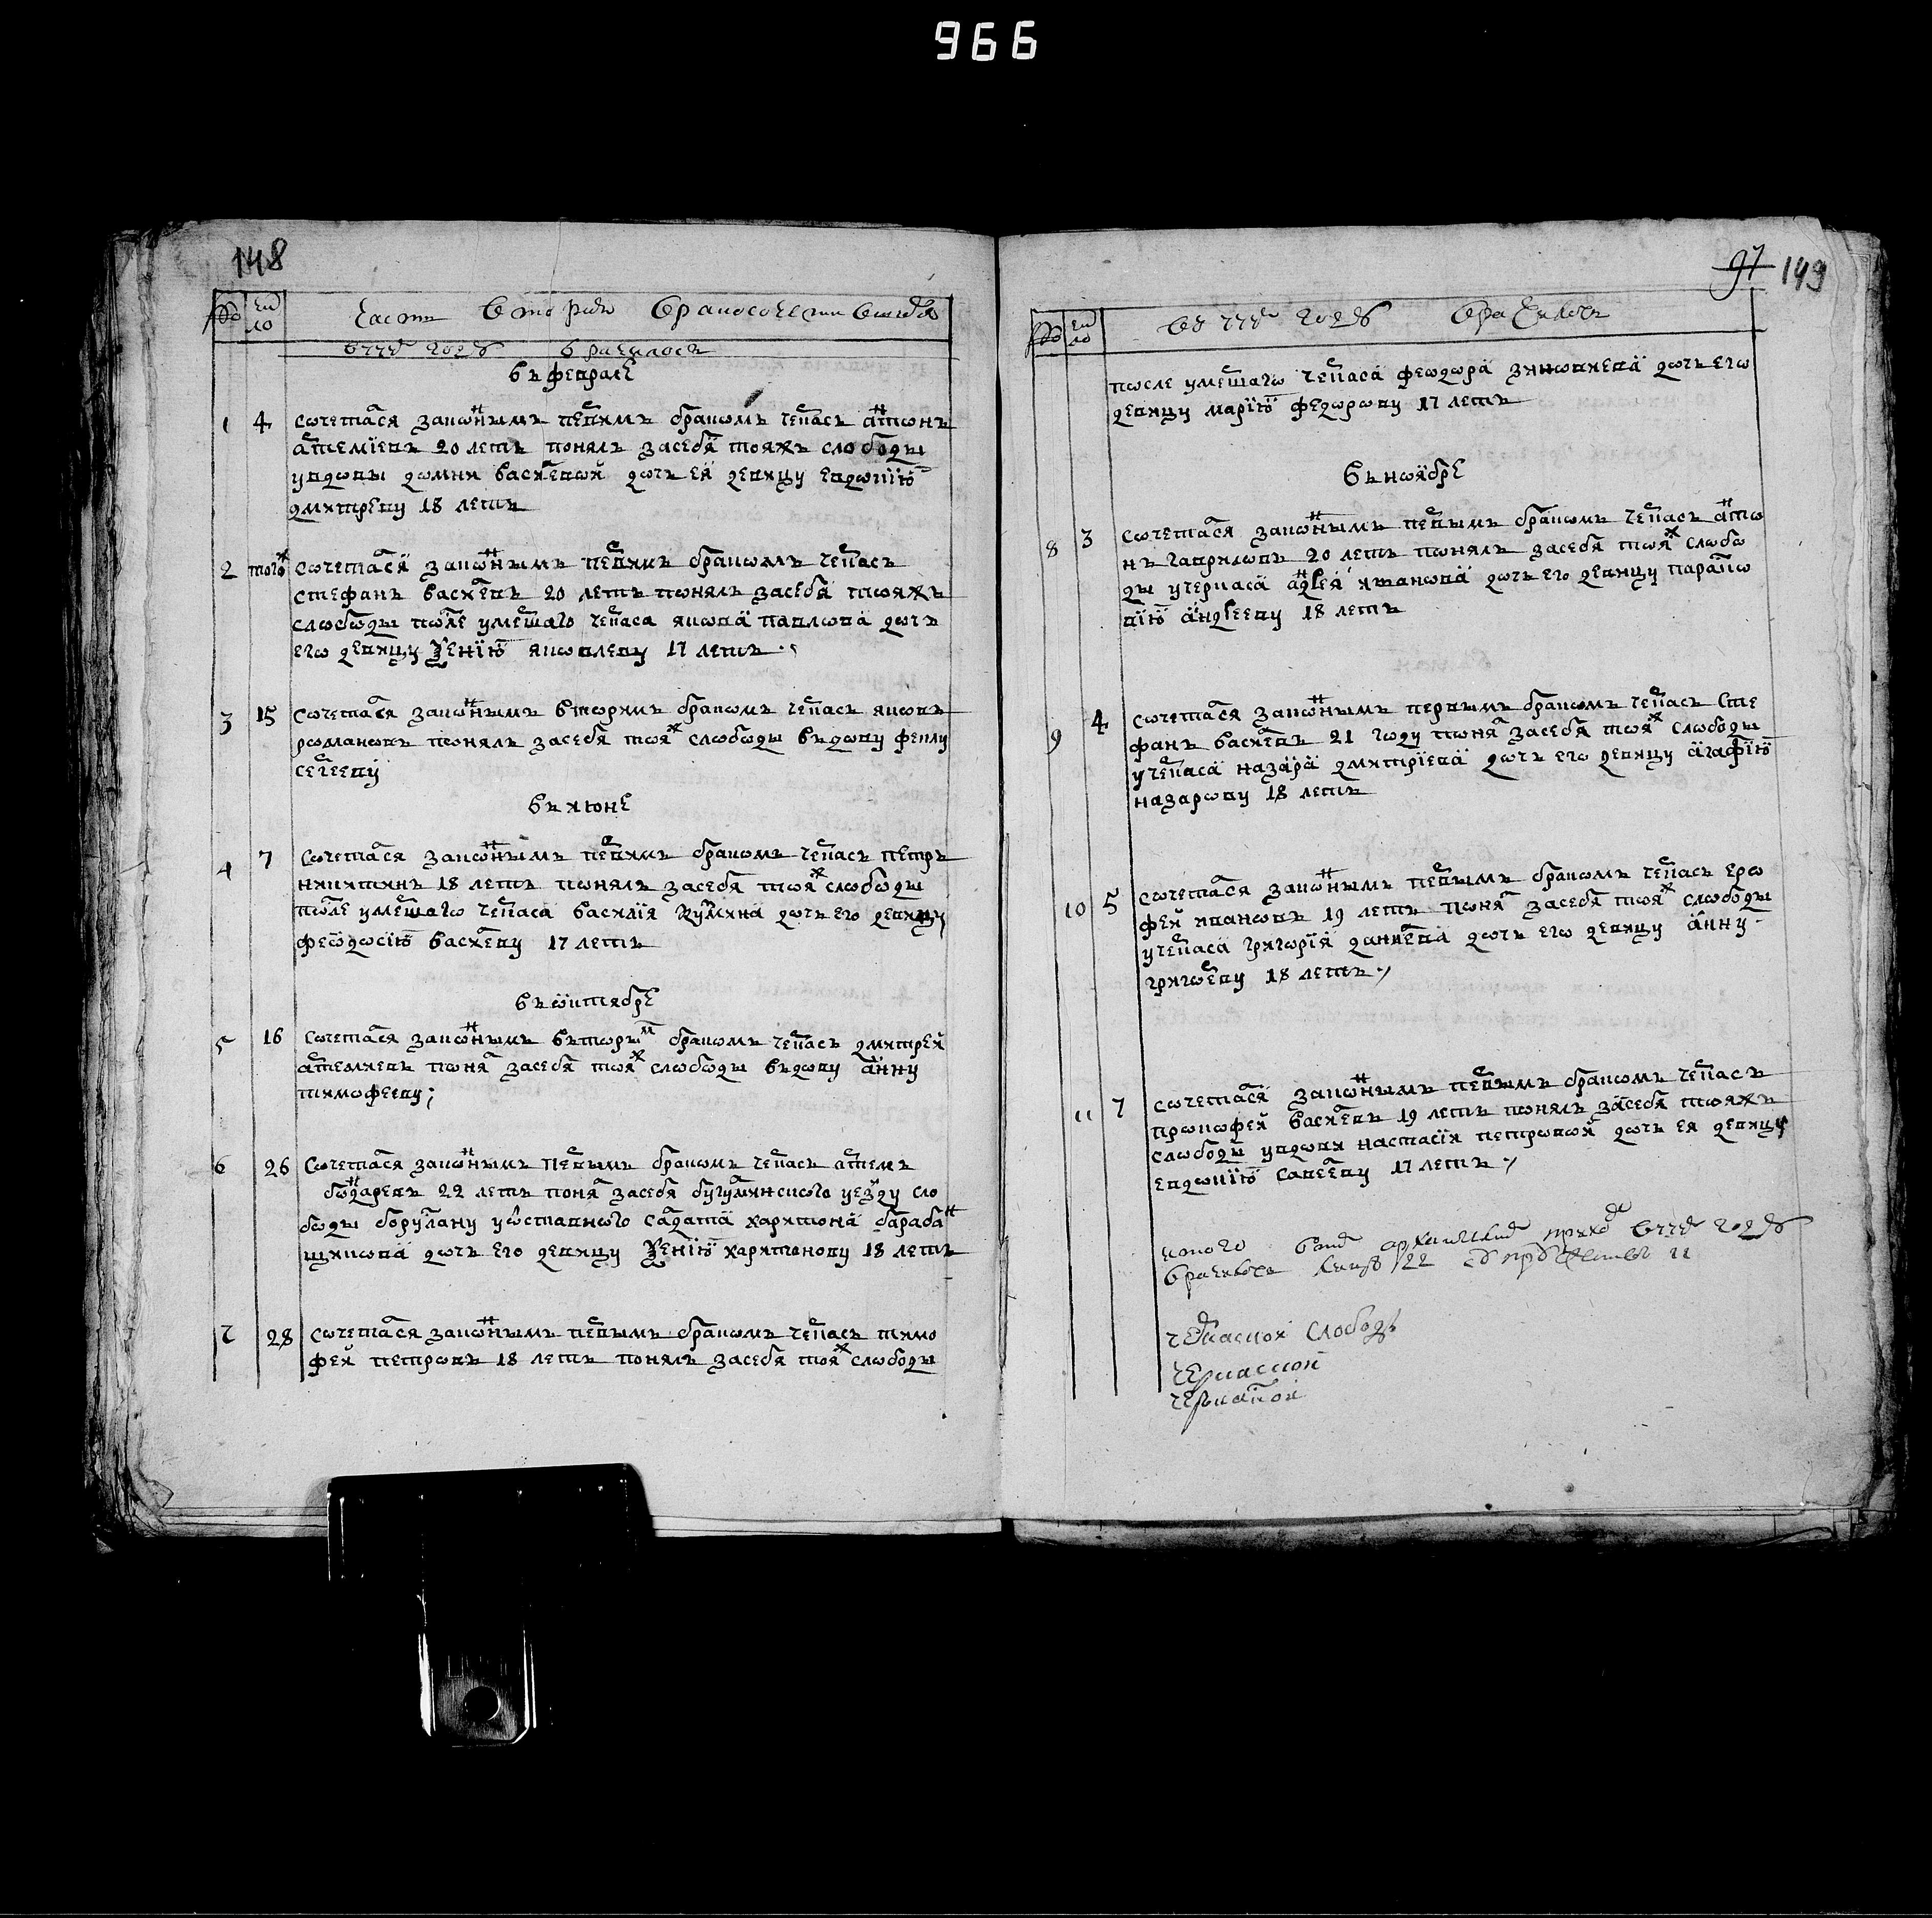 966
148
чи
ло
Часть вторая о бракосочетавшихся
году брачилось
въ феврале
1 4 сочетася законнымъ первимъ бракомъ черкасъ антонъ
артемиевъ 20 летъ понялъ засебя тояжъ слободы
увдовы домни василевой дочь ея девицу евдокию
дмитреву 18 летъ
2 тогож сочетася законнымъ первимъ бракомъ черкасъ
стефанъ василевъ 20 летъ понялъ засебя тояжъ
слободы после умершаго черкаса якова павлова дочь
его девицу ѯению яковлеву 17 летъ
3 15 сочетася законнымъ вторимъ бракомъ черкасъ яковъ
романовъ понялъ засебя тояж слободы въдову феклу
сергееву
въ июне
4 7 сочетася законнымъ первимъ бракомъ черкасъ петръ
никитинъ 18 летъ понялъ засебя тояж слободы
после умершаго черкаса василия дочь его девицу
феодосию василеву 17 летъ
въ октябре
5 16 сочетася законнымъ въторым бракомъ черкасъ дмитрей
артемиевъ понял засебя тояж слободы въдову анну
тимофееву;
6 26 сочетася законнымъ первымъ бракомъ черкасъ артемъ
бондаревъ 22 летъ понял засебя бугулминского уезду сло
боды боруслану уоставного салдата харитона барабан
щикова дочь его девицу ѯению харитонову 18 летъ
7 28 сочетася законнымъ первымъ бракомъ черкасъ тимо
фей петровъ 18 летъ понялъ засебя тояж слободы
97 149
чи
ло
году
после умершаго черкаса феодора зиновиева дочь его
девицу марию федорову 17 летъ
въ ноябре
8 3 сочетася законнымъ первымъ бракомъ черкасъ анто
нъ гавриловъ 20 летъ понялъ засебя тояж слобо
ды учеркаса андрея иванова дочь его девицу параско
вию андрееву 18 летъ
9 4 сочетася законнымъ первымъ бракомъ черкасъ сте
фанъ василевъ 21 году понял засебя тояж слободы
учеркаса назара дмитриева дочь его девицу агафию
назарову 18 летъ
10 5 сочетася законнымъ первымъ бракомъ черкасъ еро
фей ивановъ 19 летъ понял засебя тояж слободы
учеркаса григория данилева дочь его девицу анну
григореву 18 летъ
11 7 сочетася законнымъ первымъ бракомъ черкасъ
прокофей василевъ 19 летъ понялъ засебя тояжъ
слободы увдови настасия петровой дочь ея девицу
евдокию савелеву 17 летъ
году
22 11
черкаской слободы
черкаской
черкаской